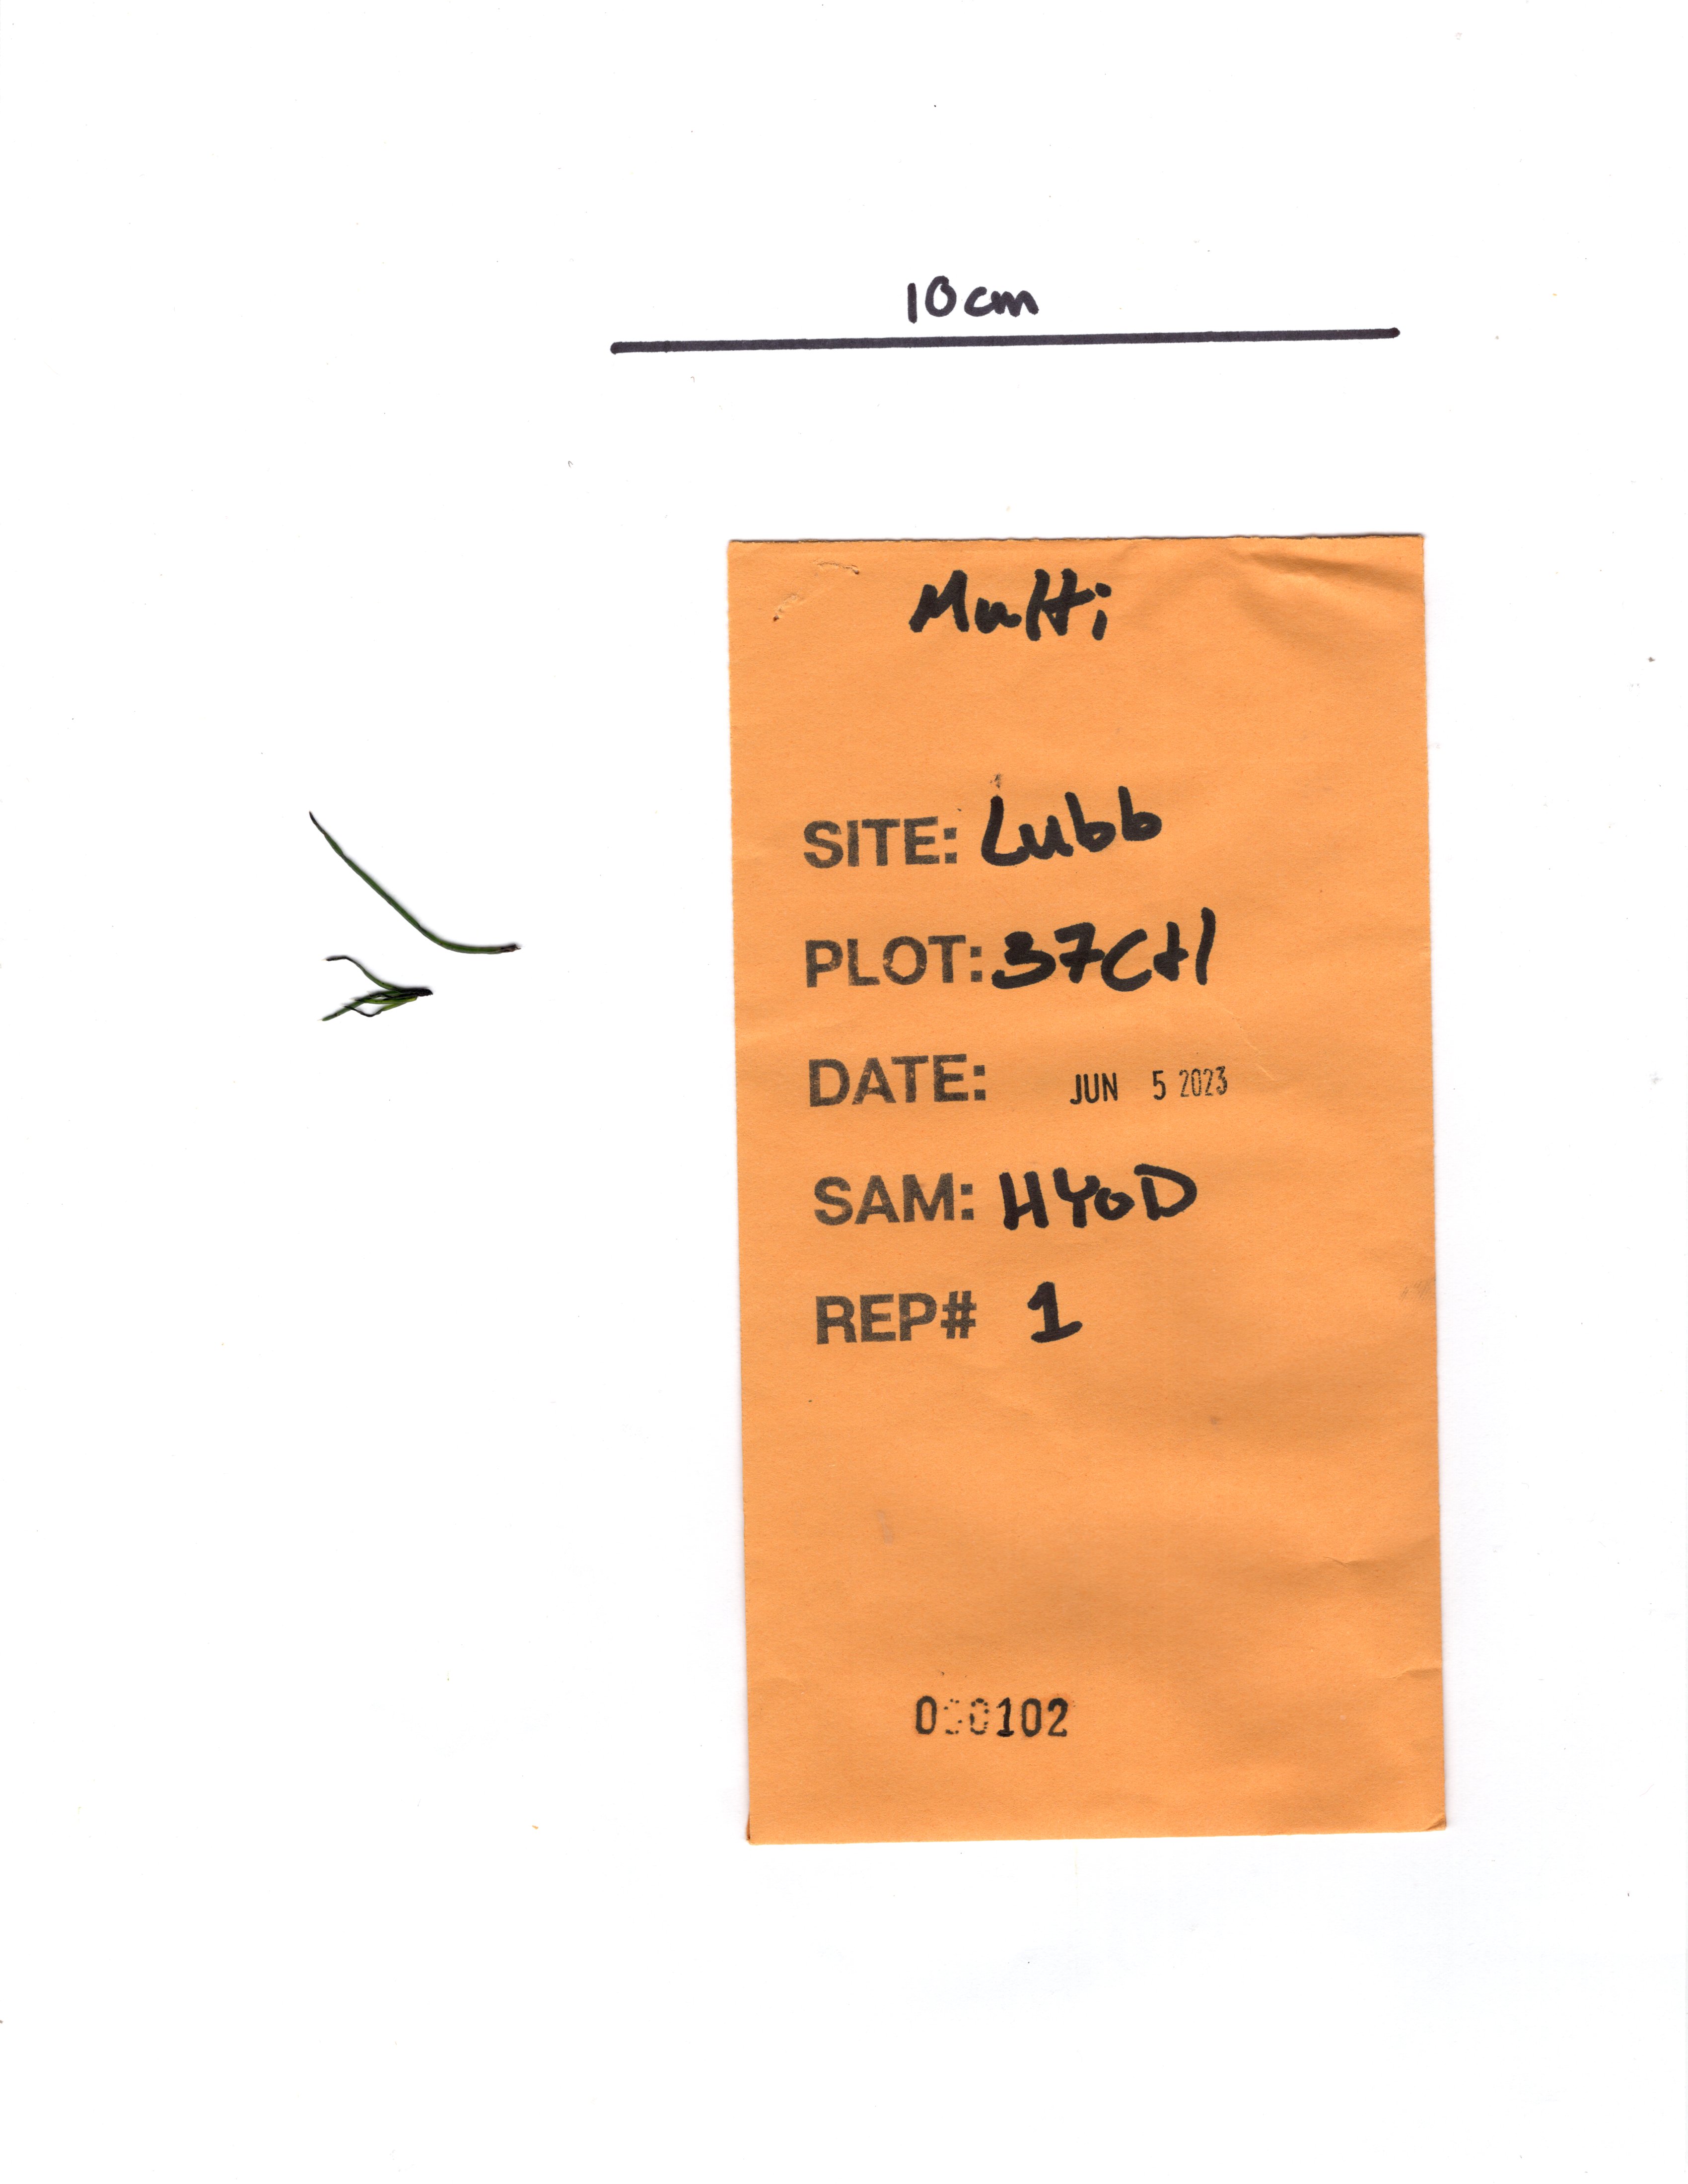 10cm
Multi
SITE: Lubb
PLOT: 37Ctl
DATE: JUN 5 2023
SAM: HYOD
REP# 1
000102